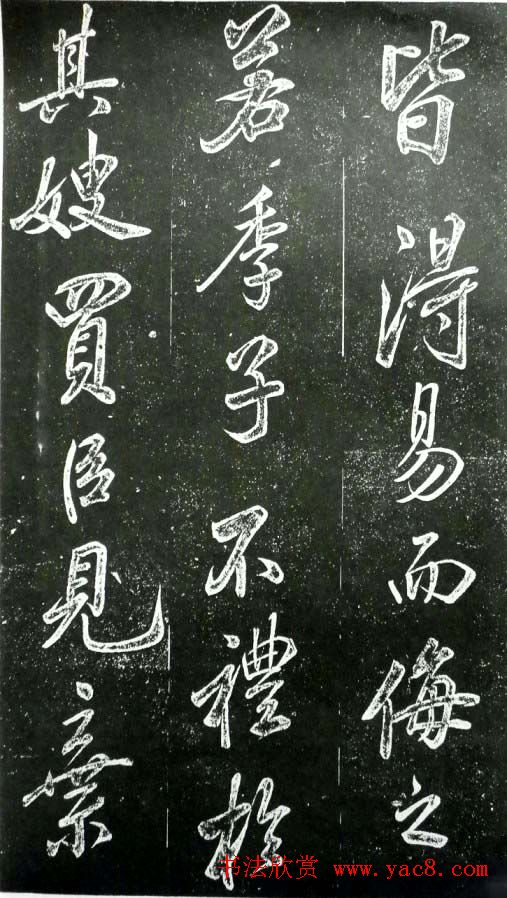 皆得易而侮之
若季子不禮於
其嫂買臣見棄
书法欣赏 www.yac8.com